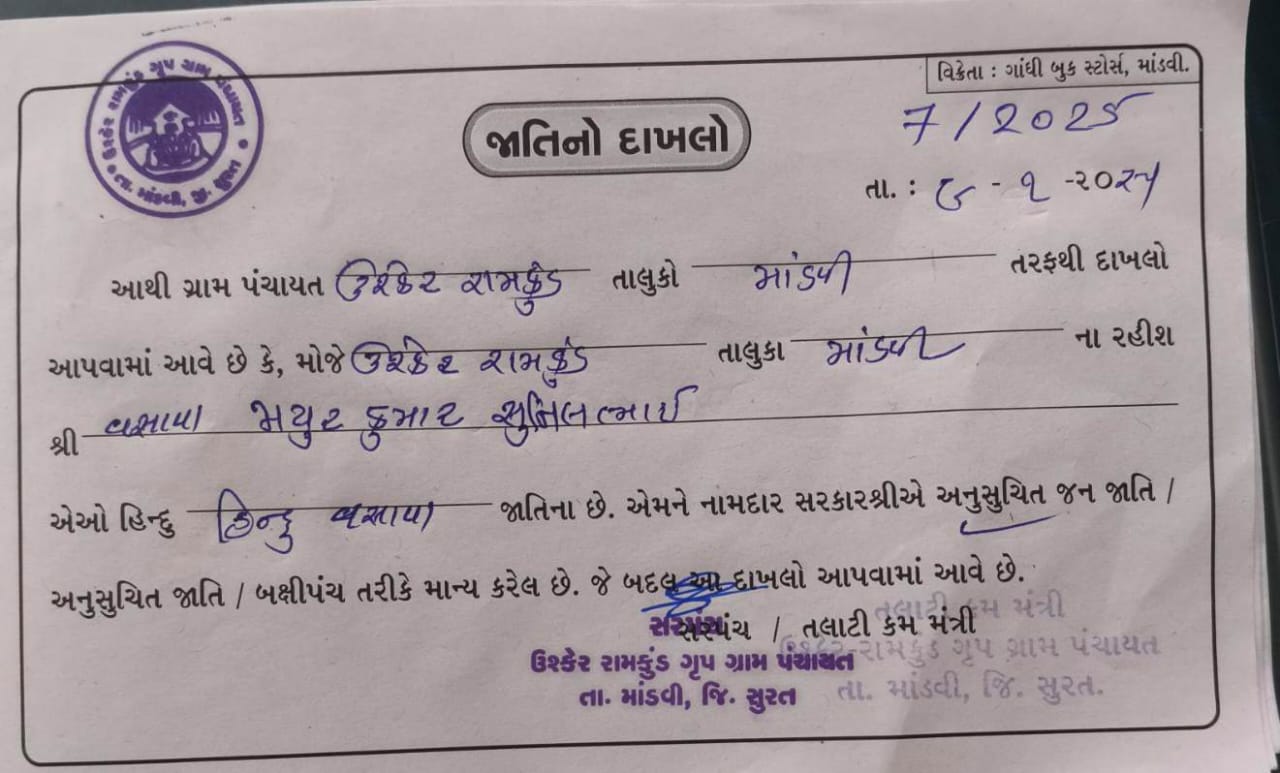 ઉશ્કેર રામકુંડ ગૃપ ગ્રામ પંચાયત
તા. માંડવી, જી. સુરત
વિક્રેતા : ગાંધી બુક સ્ટોર્સ, માંડવી.
જાતિનો દાખલો
7/2025
તા. : ૬ - ૧ -૨૦૨૫
આથી ગ્રામ પંચાયત ઉશ્કેર રામકુંડ તાલુકો માંડવી તરફથી દાખલો
આપવામાં આવે છે કે, મોજે ઉશ્કેર રામકુંડ તાલુકા માંડવી ના રહીશ
શ્રી વસાવા મયુર કુમાર સુનિલભાઈ
એઓ હિન્દુ હિન્દુ વસાવા જાતિના છે. એમને નામદાર સરકારશ્રીએ અનુસુચિત જન જાતિ /
અનુસુચિત જાતિ / બક્ષીપંચ તરીકે માન્ય કરેલ છે. જે બદલ આ દાખલો આપવામાં આવે છે.
સરપંચ / તલાટી કમ મંત્રી
સરપંચ
ઉશ્કેર રામકુંડ ગૃપ ગ્રામ પંચાયત
તા. માંડવી, જિ. સુરત
તલાટી કમ મંત્રી
ઉશ્કેર-રામકુંડ ગૃપ ગ્રામ પંચાયત
તા. માંડવી, જિ. સુરત.